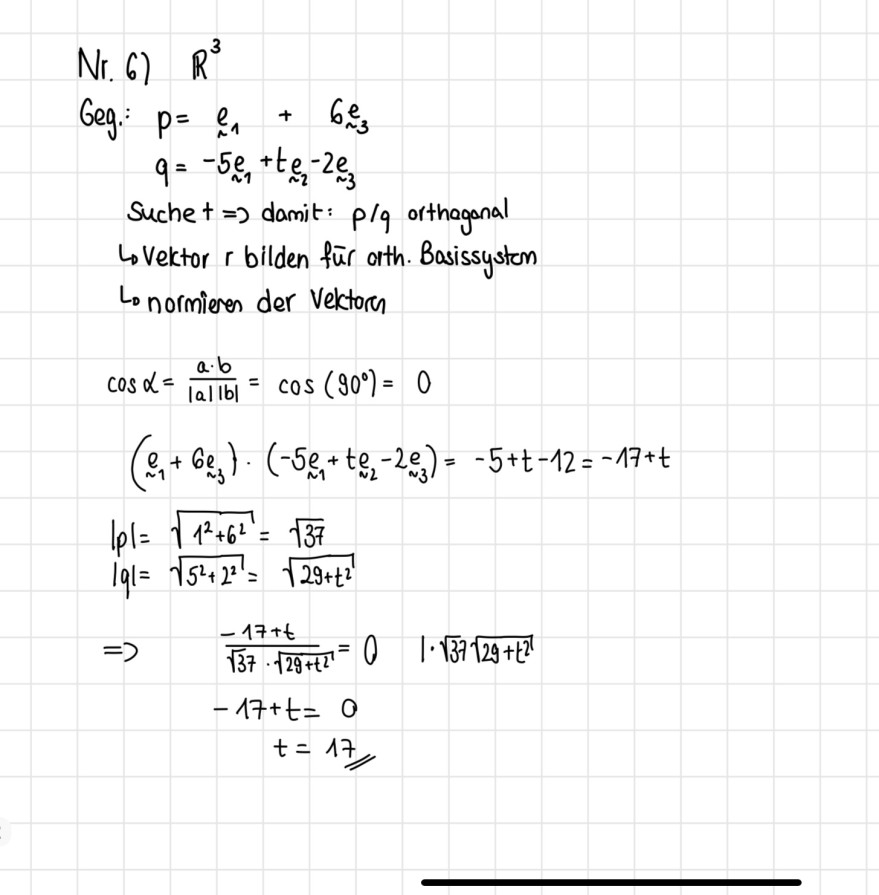 Nr. 6) ℝ³
Geg.: p = ḛ₁ + 6ḛ₃
q = -5ḛ₁ + tḛ₂ - 2ḛ₃
Suche t => damit: p/q orthogonal
↳ Vektor r bilden für orth. Basissystem
↳ normieren der Vektorn
cos α = a·b / |a||b| = cos (90°) = 0
(ḛ₁ + 6ḛ₃) · (-5ḛ₁ + tḛ₂ - 2ḛ₃) = -5+t-12 = -17+t
|p| = √(1²+6²) = √37
|q| = √(5²+2²) = √(29+t²)
=> (-17+t) / (√37 · √(29+t²)) = 0 | · √37 √(29+t²)
-17+t = 0
t = 17